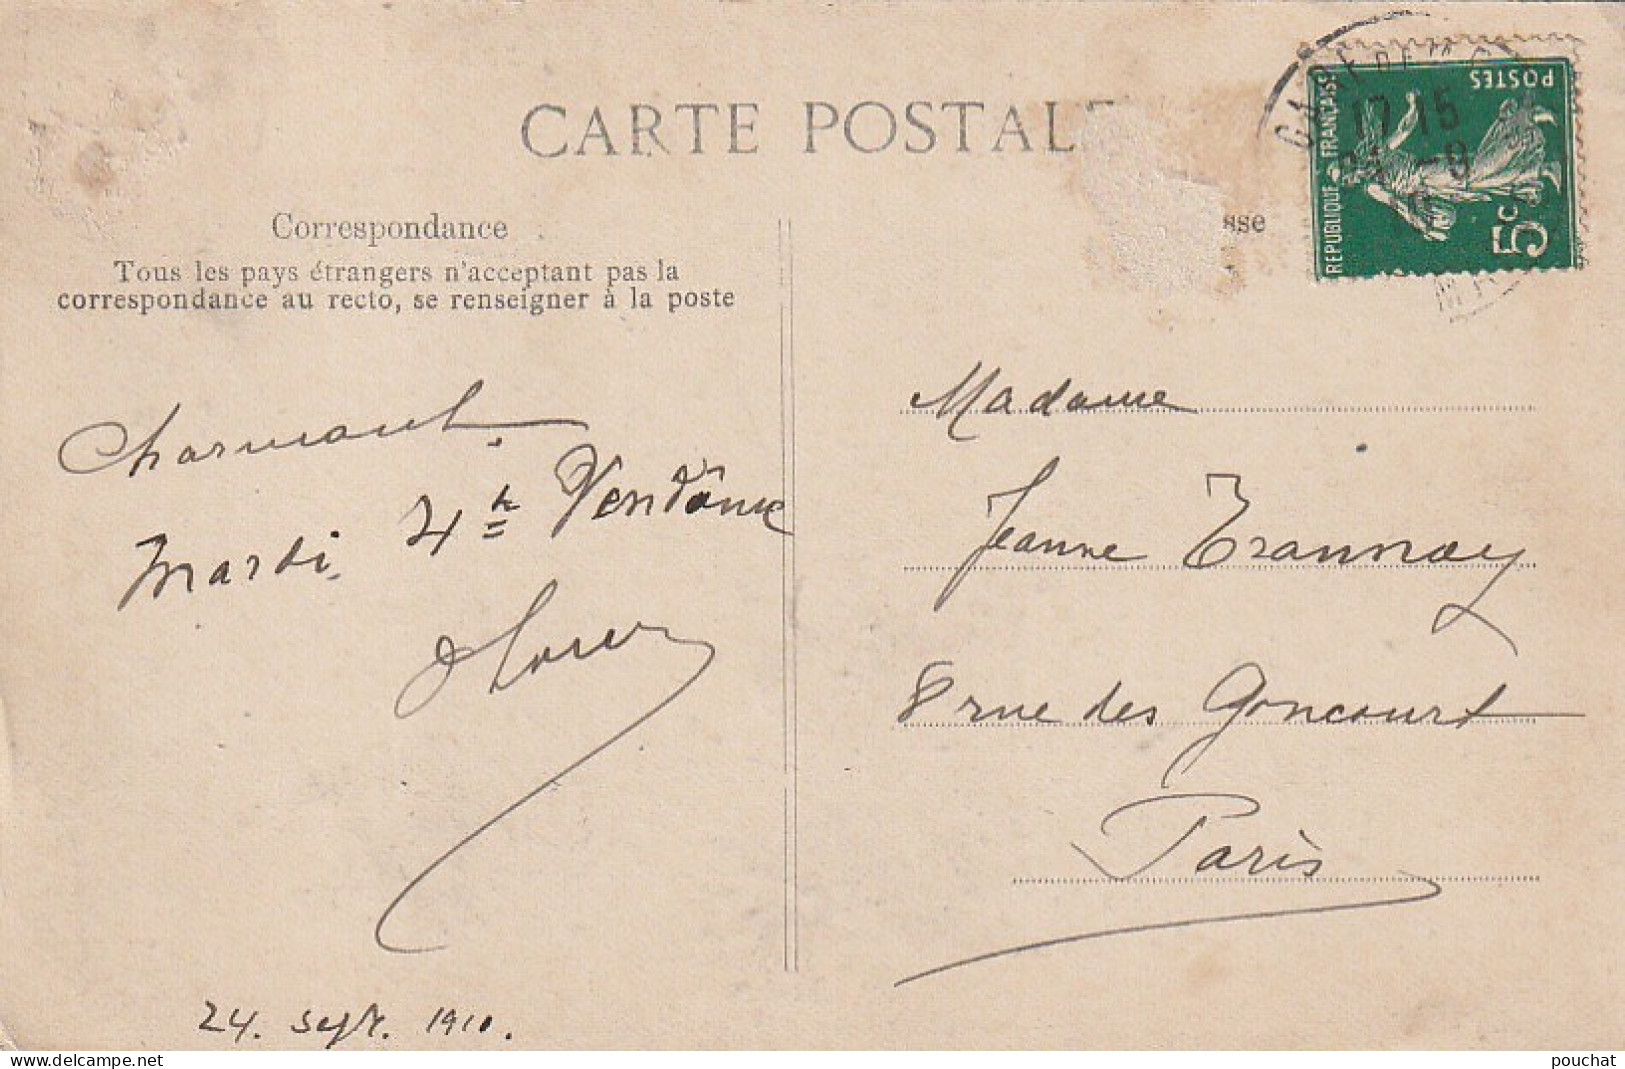 CARTE POSTALE
Correspondance
Tous les pays étrangers n'acceptant pas la
correspondance au recto, se renseigner à la poste
sse
REPUBLIQUE FRANÇAISE
POSTES
5c
17 15
24 -9
10
Charmant.
Mardi 4h Vendôme
24. Sept. 1910.
Madame
Jeanne Trannoy
8 rue des Goncourt
Paris
pouchat